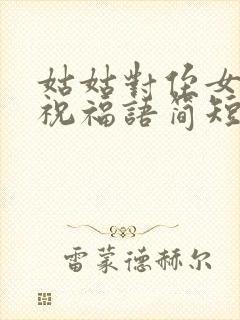 姑姑對侄女
祝福語簡短
雷蒙德赫尔